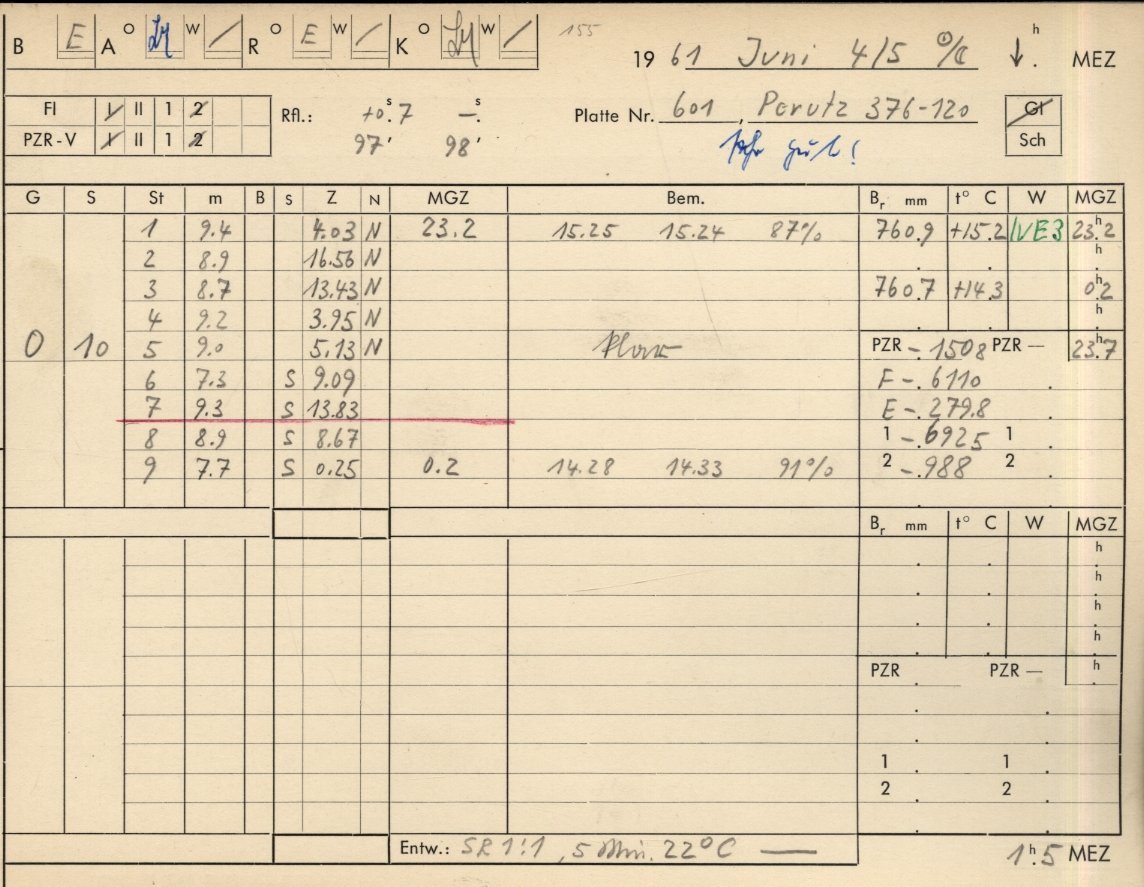 B E A ° W / R ° E W / K ° W / 155
19 61 Juni 4/5 ☉/☾ ↓ h . MEZ
FI I II 1 2 Rfl.: +0.s7 —.s Platte Nr. 601, Perutz 376-120 Gl
PZR-V I II 1 2 97' 98' Sehr gut! Sch
G S St m B S Z N MGZ Bem. Br mm t° C W MGZ
1 9.4 4.03 N 23.2 15.25 15.24 87% 760.9 +15.2 IVE3 23.h2
2 8.9 16.56 N h
3 8.7 13.43 N 760.7 +14.3 0.h2
4 9.2 3.95 N h
0 10 5 9.0 5.13 N klar PZR -.1508 PZR — 23.h7
6 7.3 S 9.09 F -.6110
7 9.3 S 13.83 E -.2798
8 8.9 S 8.67 1 -.6925 1
9 7.7 S 0.25 0.2 14.28 14.33 91% 2 -.988 2
Br mm t° C W MGZ
h
h
h
h
PZR PZR — h
1 1
2 2
Entw.: SR 1:1, 5 Min. 22°C —
1.h5 MEZ